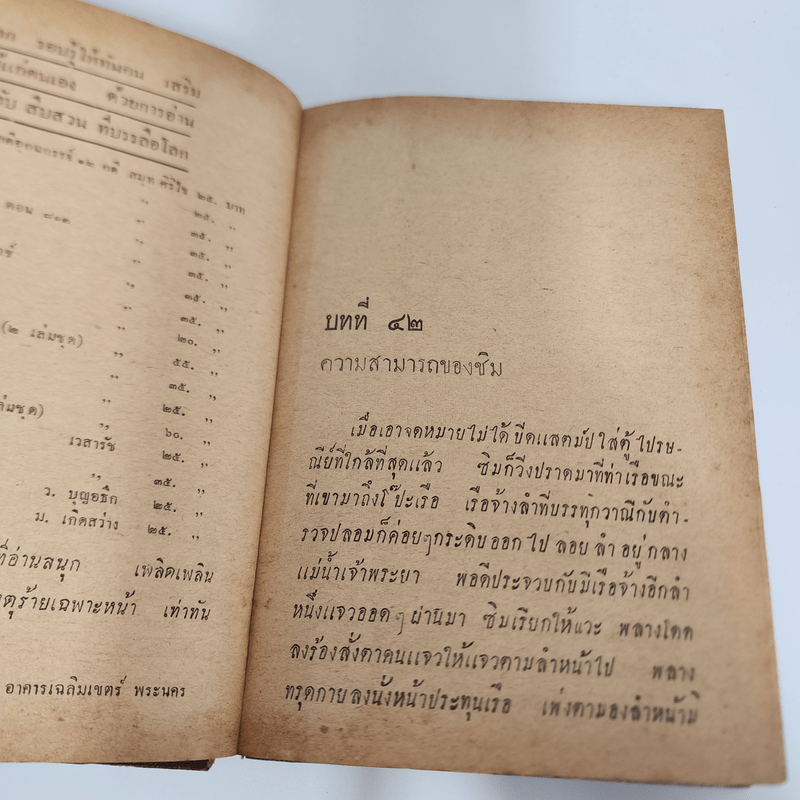 รอบรู้ให้ทันคน เสริม
ให้แก่ตนเอง ด้วยการอ่าน
สืบสวน ที่บรรลือโลก
๑๒ คดี สมุท ศิริไข ๒๕. บาท
„ ๒๕. „
ตอน „ ๓๕. „
„ ๓๕. „
„ ๓๕. „
„ ๓๕. „
(๒ เล่มชุด) „ ๒๐. „
„ ๕๕. „
„ ๓๕. „
เล่มชุด) „ ๒๕. „
„ ๖๐. „
เวสารัช ๒๕. „
„ ๓๕. „
ว. บุญอธึก ๒๕. „
ม. เกิดสว่าง ๒๕. „
ที่อ่านสนุก เพลิดเพลิน
เหตุร้ายเฉพาะหน้า เท่าทัน
อาคารเฉลิมเขตร์ พระนคร
บทที่ ๔๒
ความสามารถของซิม
เมื่อเอาจดหมายไม่ได้ ขีดแสตมป์ ใส่ตู้ ไปรษ-
ณีย์ที่ใกล้ที่สุดแล้ว ซิมก็วิ่งปราดมาที่ท่าเรือขณะ
ที่เขามาถึงโป๊ะเรือ เรือจ้างลำที่บรรทุกวาณีกับตำ-
รวจปลอมก็ค่อยๆกระดิบออกไป ลอยลำอยู่กลาง
แม่น้ำเจ้าพระยา พอดีประจวบกับมีเรือจ้างอีกลำ
หนึ่งแจวออดๆผ่านมา ซิมเรียกให้แวะ พลางโดด
ลงร้องสั่งตาคนแจวให้แจวตามลำหน้าไป พลาง
ทรุดกายลงนั่งหน้าประทุนเรือ เพ่งตามองลำหน้ามิ